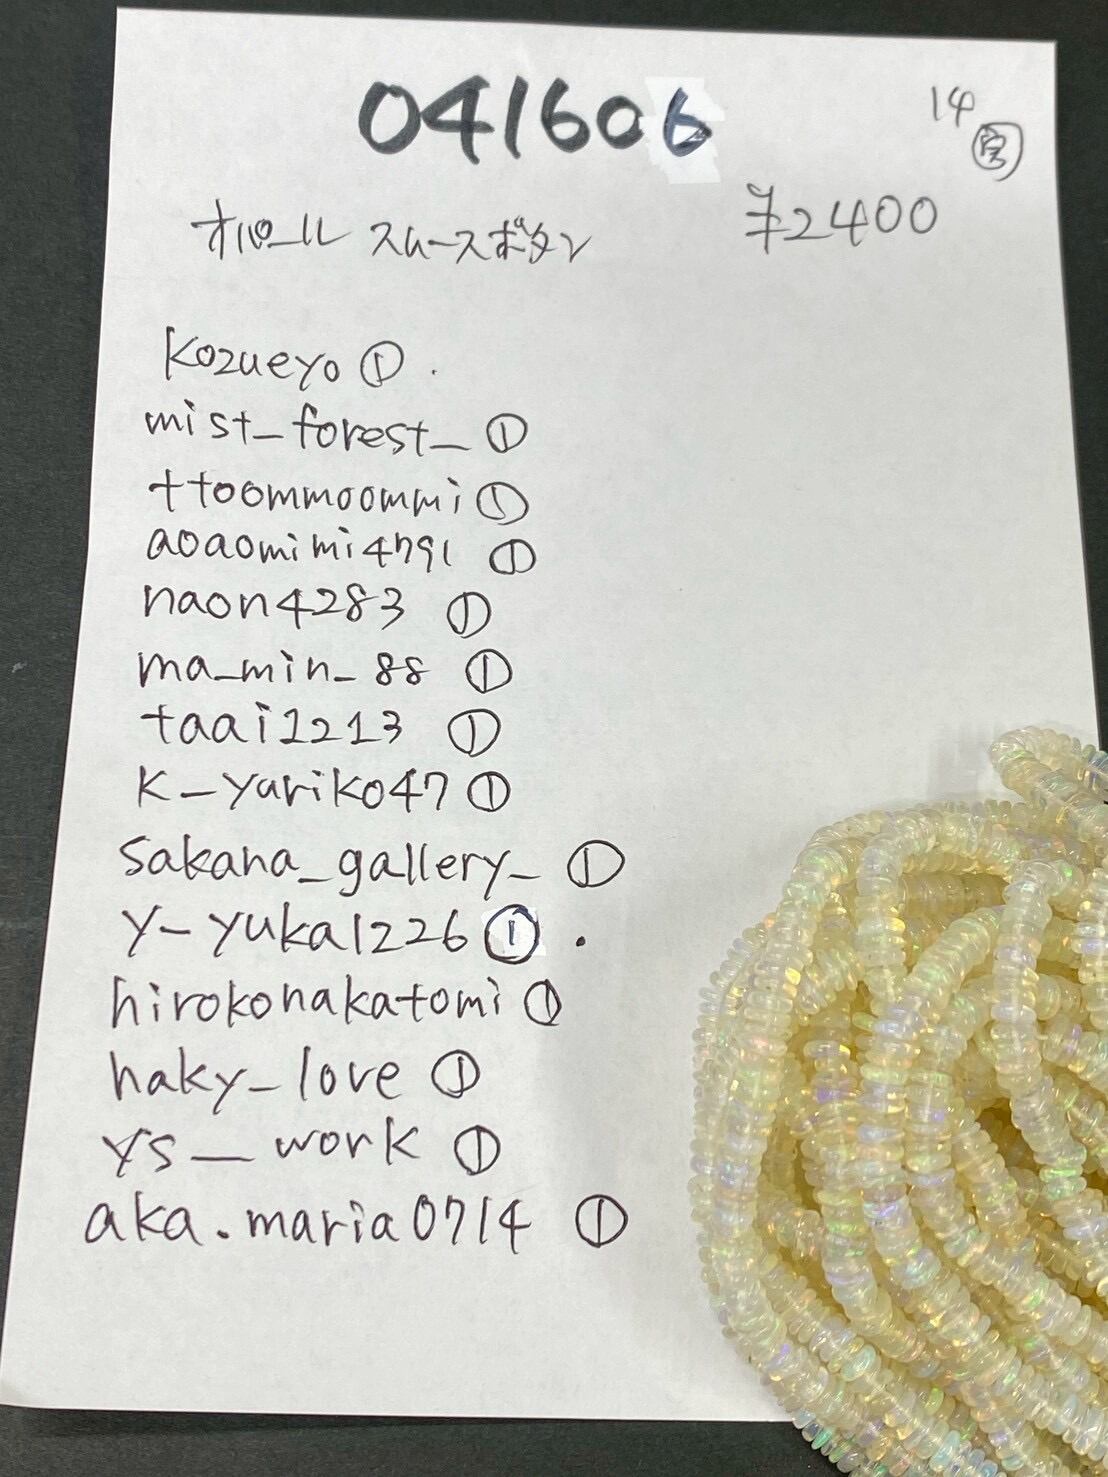 041606
14
宮
オパール スムースボタン
¥2400
kozueyo ①
mist_forest_ ①
ttoommoommi ①
aoaomimi4791 ①
naon4283 ①
ma_min_88 ①
taai1213 ①
k_yuriko47 ①
sakana_gallery_ ①
y_yuka1226 ①
hirokonakatomi ①
haky_love ①
ys__work ①
aka.maria0714 ①